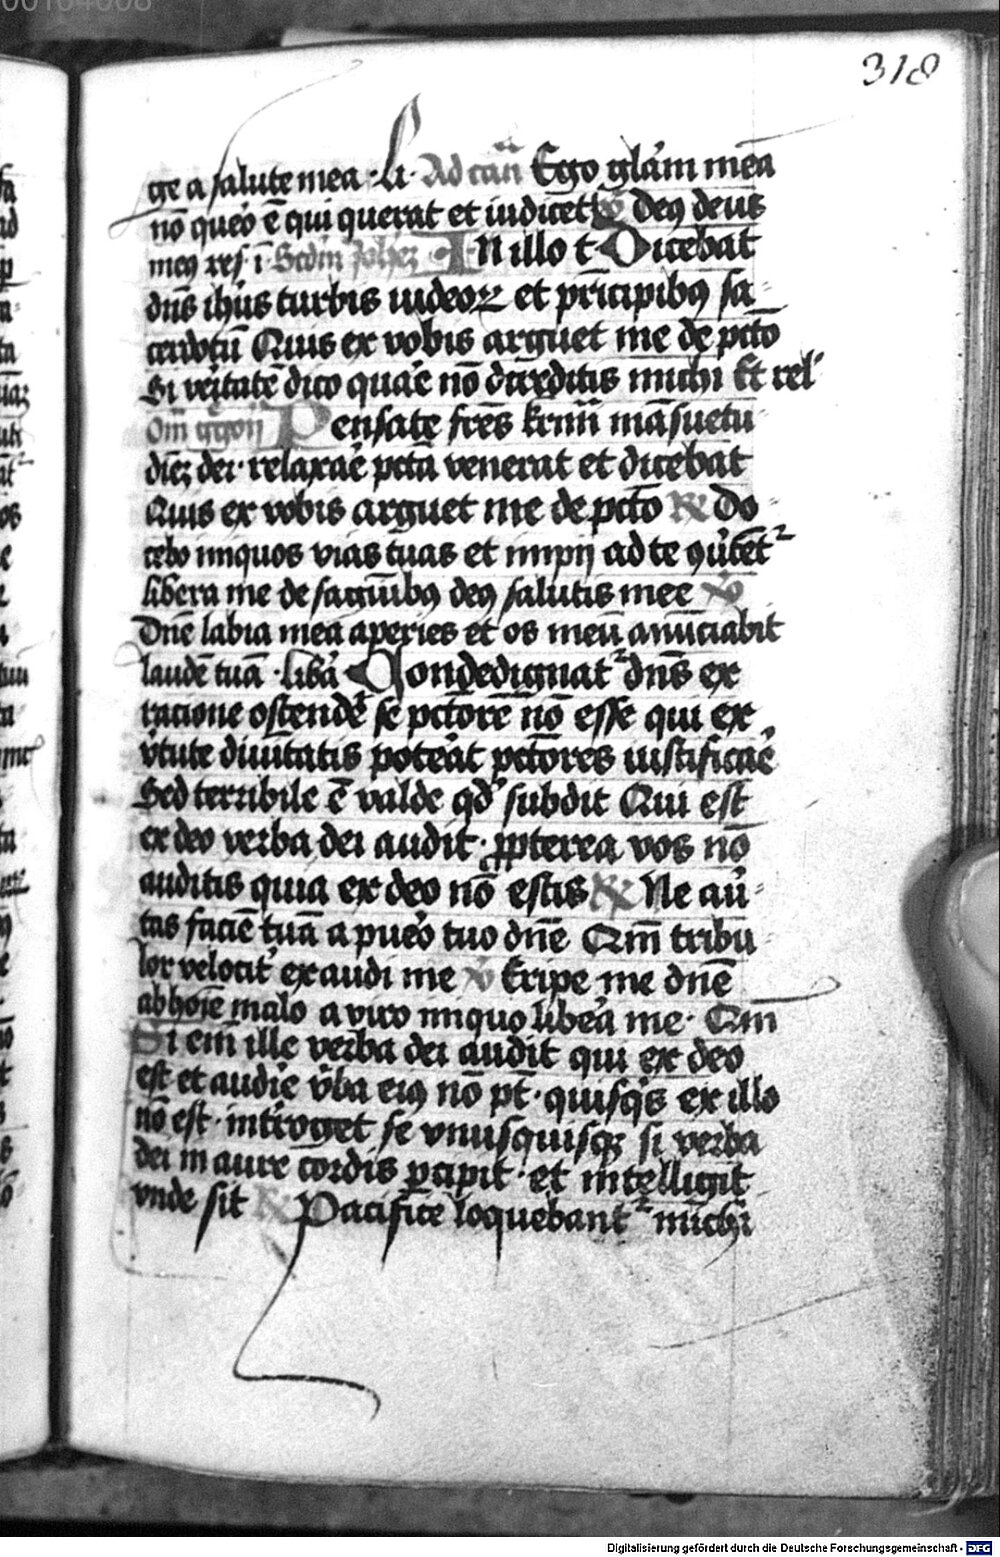 00104668
318
ge a salute mea · Li · Ad can̄ Ego gl'am meā
nō quero ē qui querat et iudicet ꝟ Deꝰ deus
meꝰ res i Scd'm Joheꝫ IN illo t Dicebat
dn̄s ihūs turbis iudeoꝝ et prīcipibꝰ sa-
cerdotū Quis ex vobis arguet me de pctō
Si veritatē dico quare nō creditis michi Et rel'
Om̄ g'gorij Pensate fr̄es krm̄i māsuetu
dīeꝫ dei · relaxare pctā venerat et dicebat
Quis ex vobis arguet me de pctō ℟ Do-
cebo iniquos vias tuas et impij ad te ꝯu'tent᷑
libera me de sagui'bꝰ deꝰ salutis mee ꝟ
Dn̄e labia mea aperies et os meū anūciabit
laudē tuā · Liba' Non dedignat᷑ dn̄s ex
racione ostende' se pctōrē nō esse qui ex
v'tute diuītatis poterat pctōres iustificare
Sed terribile ē valde qd' subdit Qui est
ex deo verba dei audit · ꝓpterea vos nō
auditis quia ex deo nō estis ℟ Ne au'-
tas faciē tuā a puero tuo dn̄e Qm̄ tribu
lor velocit' exaudi me ꝟ Eripe me dn̄e
ab hoīe malo a viro iniquo libera me · Qm̄
Si em̄ ille verba dei audit qui ex deo
est et audire v'ba eiꝰ nō pt̄ · quisq's ex illo
nō est · int'roget se vnusquisqꝫ si verba
dei in aure cordis p̄cipit · et intelligit
vnde sit ℟ Pacifice loquebant᷑ michi
Digitalisierung gefördert durch die Deutsche Forschungsgemeinschaft - DFG